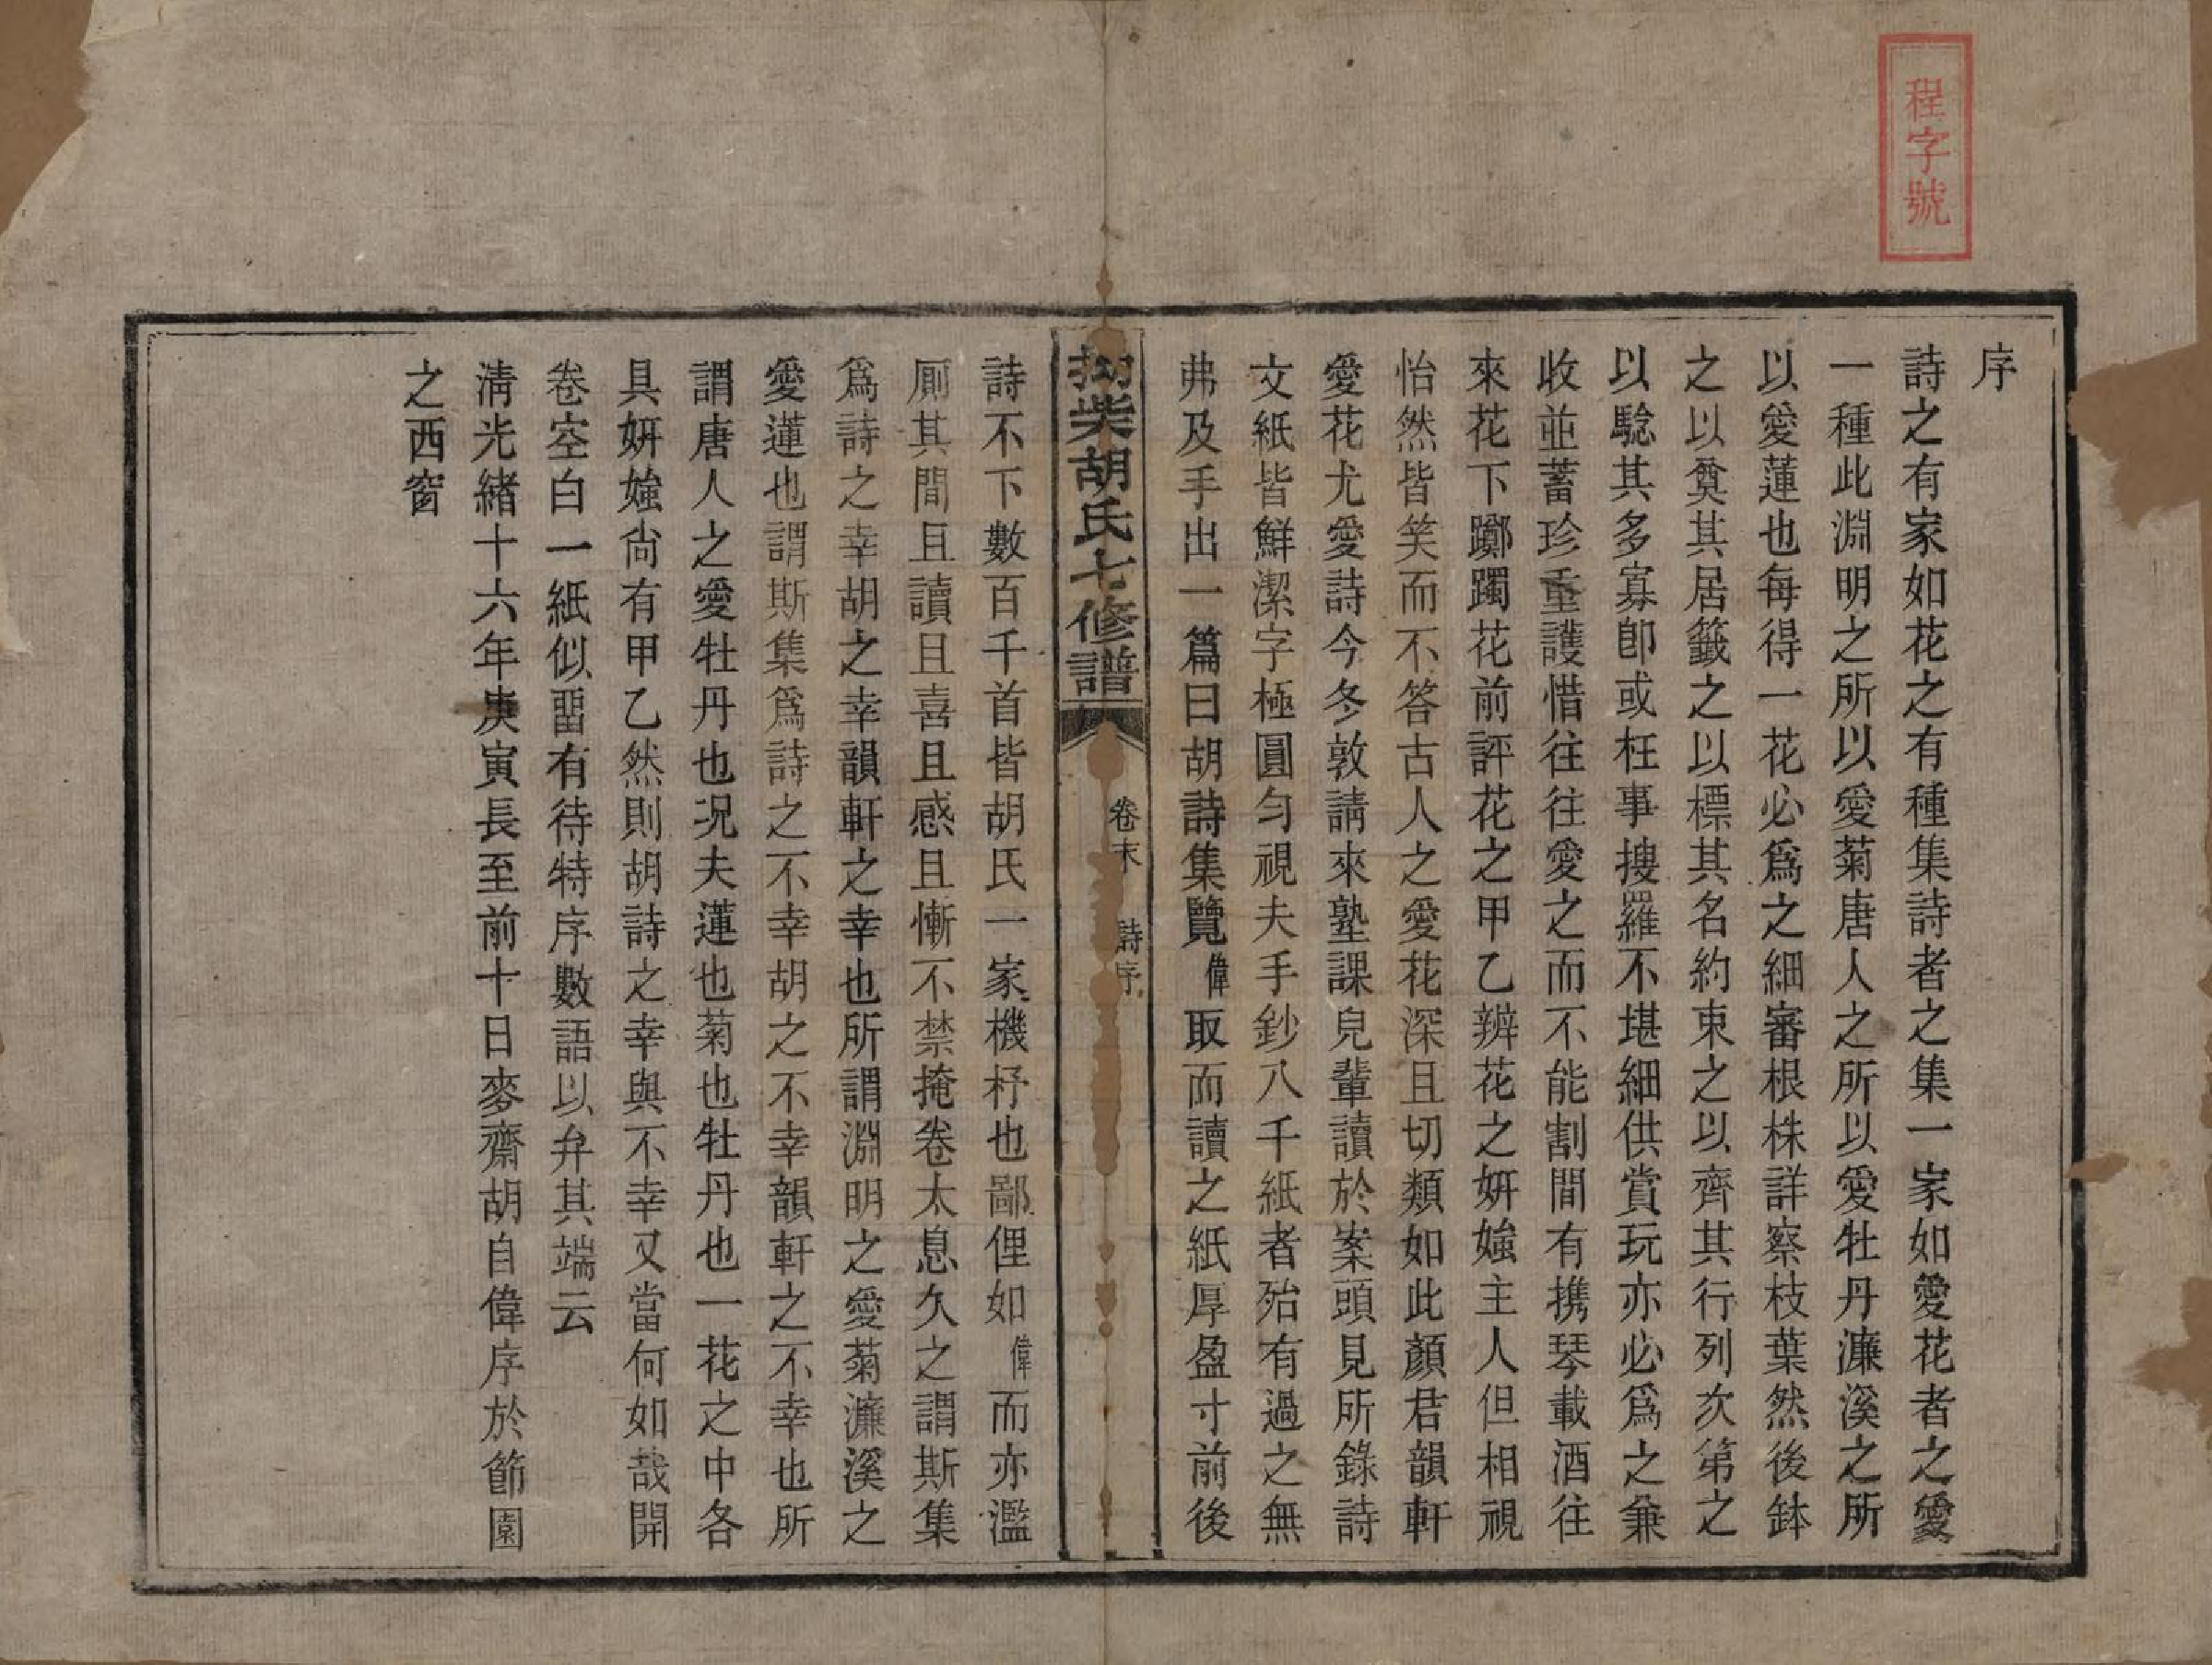 程字號
序
詩之有家如花之有種集詩者之集一家如愛花者之愛
一種此淵明之所以愛菊唐人之所以愛牡丹濂溪之所
以愛蓮也每得一花必爲之細審根株詳察枝葉然後鉢
之以奠其居籤之以標其名約束之以齊其行列次第之
以驗其多寡卽或枉事搜羅不堪細供賞玩亦必爲之兼
收並蓄珍重護惜往往愛之而不能割間有携琴載酒往
來花下躑躅花前評花之甲乙辨花之妍媸主人但相視
怡然皆笑而不答古人之愛花深且切類如此顏君韻軒
愛花尤愛詩今冬敦請來塾課兒輩讀於案頭見所錄詩
文紙皆鮮潔字極圓勻視夫手鈔八千紙者殆有過之無
弗及手出一篇曰胡詩集覽偉取而讀之紙厚盈寸前後
柴胡氏七修譜
卷末 詩序
詩不下數百千首皆胡氏一家機杼也鄙俚如偉而亦濫
厠其間且讀且喜且感且慚不禁掩卷太息久之謂斯集
爲詩之幸胡之幸韻軒之幸也所謂淵明之愛菊濂溪之
愛蓮也謂斯集爲詩之不幸胡之不幸韻軒之不幸也所
謂唐人之愛牡丹也況夫蓮也菊也牡丹也一花之中各
具妍媸尙有甲乙然則胡詩之幸與不幸又當何如哉開
卷空白一紙似畱有待特序數語以弁其端云
淸光緖十六年庚寅長至前十日麥齋胡自偉序於節園
之西窗